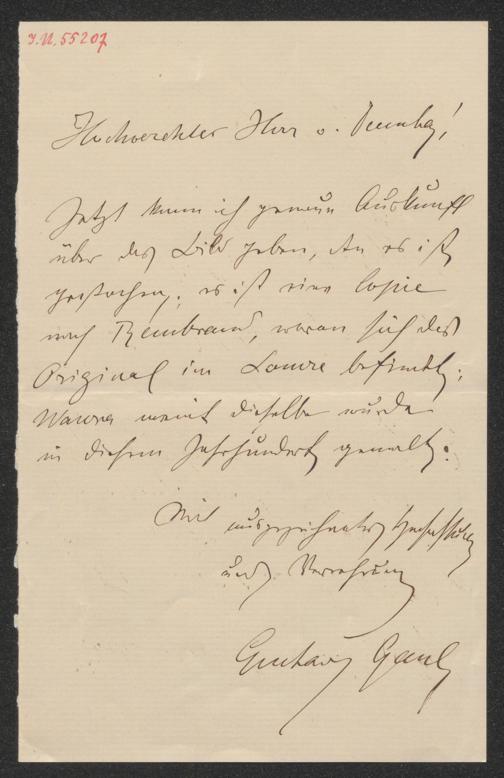 I.N. 55207
Hochverehrter Herr v.
Jetzt kann ich genaue Auskunft
über das Bild geben, da es ist
gestochen; es ist eine Copie
nach Rembrand, wovon sich das
Original im Louvre befindet;
Wawra meint dieselbe wurde
in diesem Jahrhundert gemalt.
Mit ausgezeichneter Hochachtung
und Verehrung
Gustav Gaul